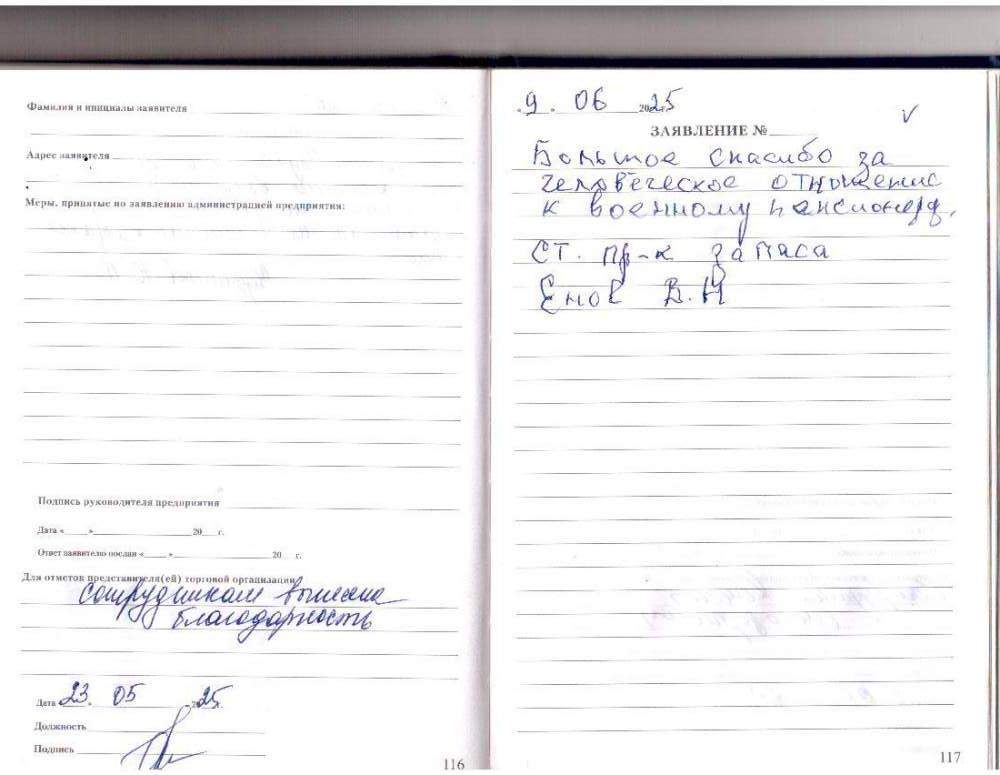 Фамилия и инициалы заявителя
Адрес заявителя
Меры, принятые по заявлению администрацией предприятия:
Подпись руководителя предприятия
Дата « » 20 г.
Ответ заявителю послан « » 20 г.
Для отметок представителя(ей) торговой организации
сотрудникам вынесена
благодарность
Дата 23. 05 2025
Должность
Подпись
116
9. 06 2025
ЗАЯВЛЕНИЕ №
Большое спасибо за
человеческое отношение
к военному пенсионеру.
ст. пр-к запаса
Енов В.Н
117